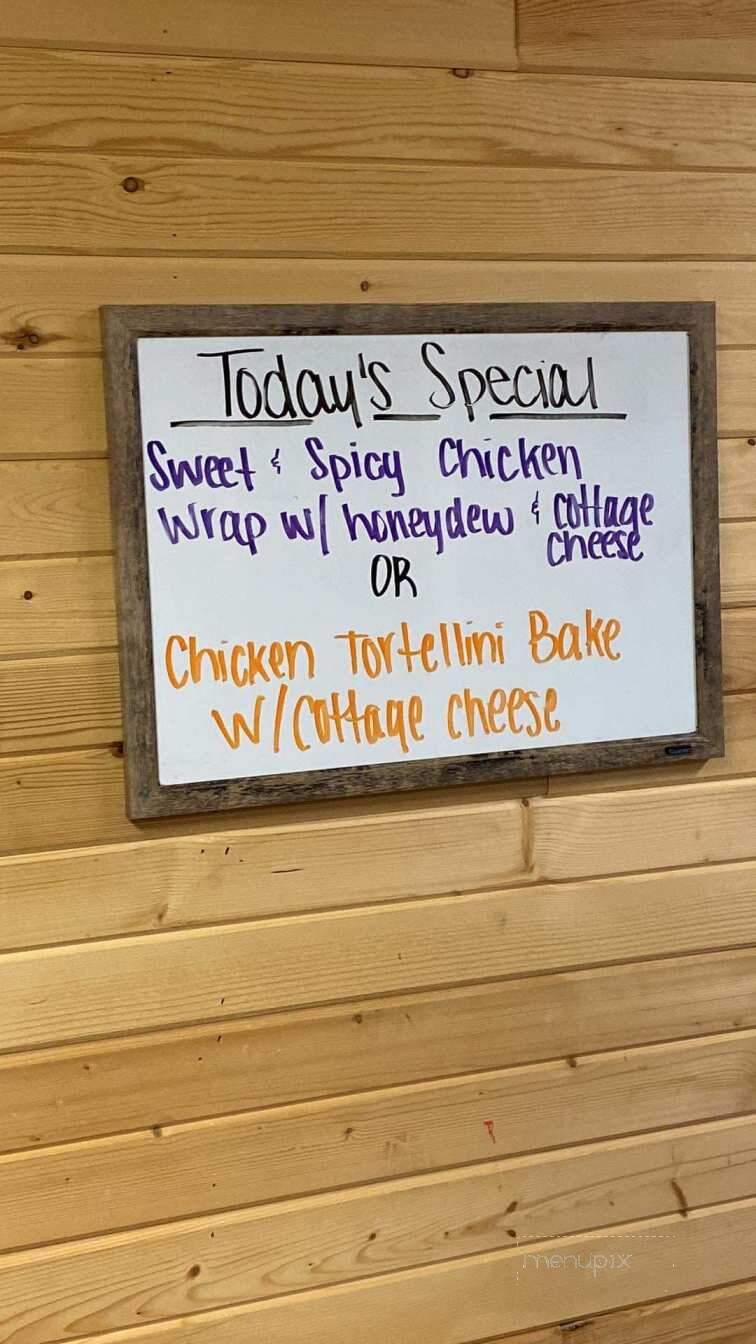 Today's Special
Sweet & Spicy Chicken
Wrap w/ honeydew & cottage
cheese
OR
Chicken Tortellini Bake
w/ cottage cheese
menupix